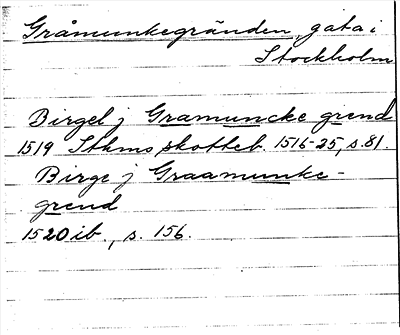 Gråmunkegränden, gata i
Stockholm
Birgel j Gramuncke grend
1519 Sthms skotteb. 1516-25, s. 81.
Birge j Graamunke-
grend
1520 ib., s. 156.